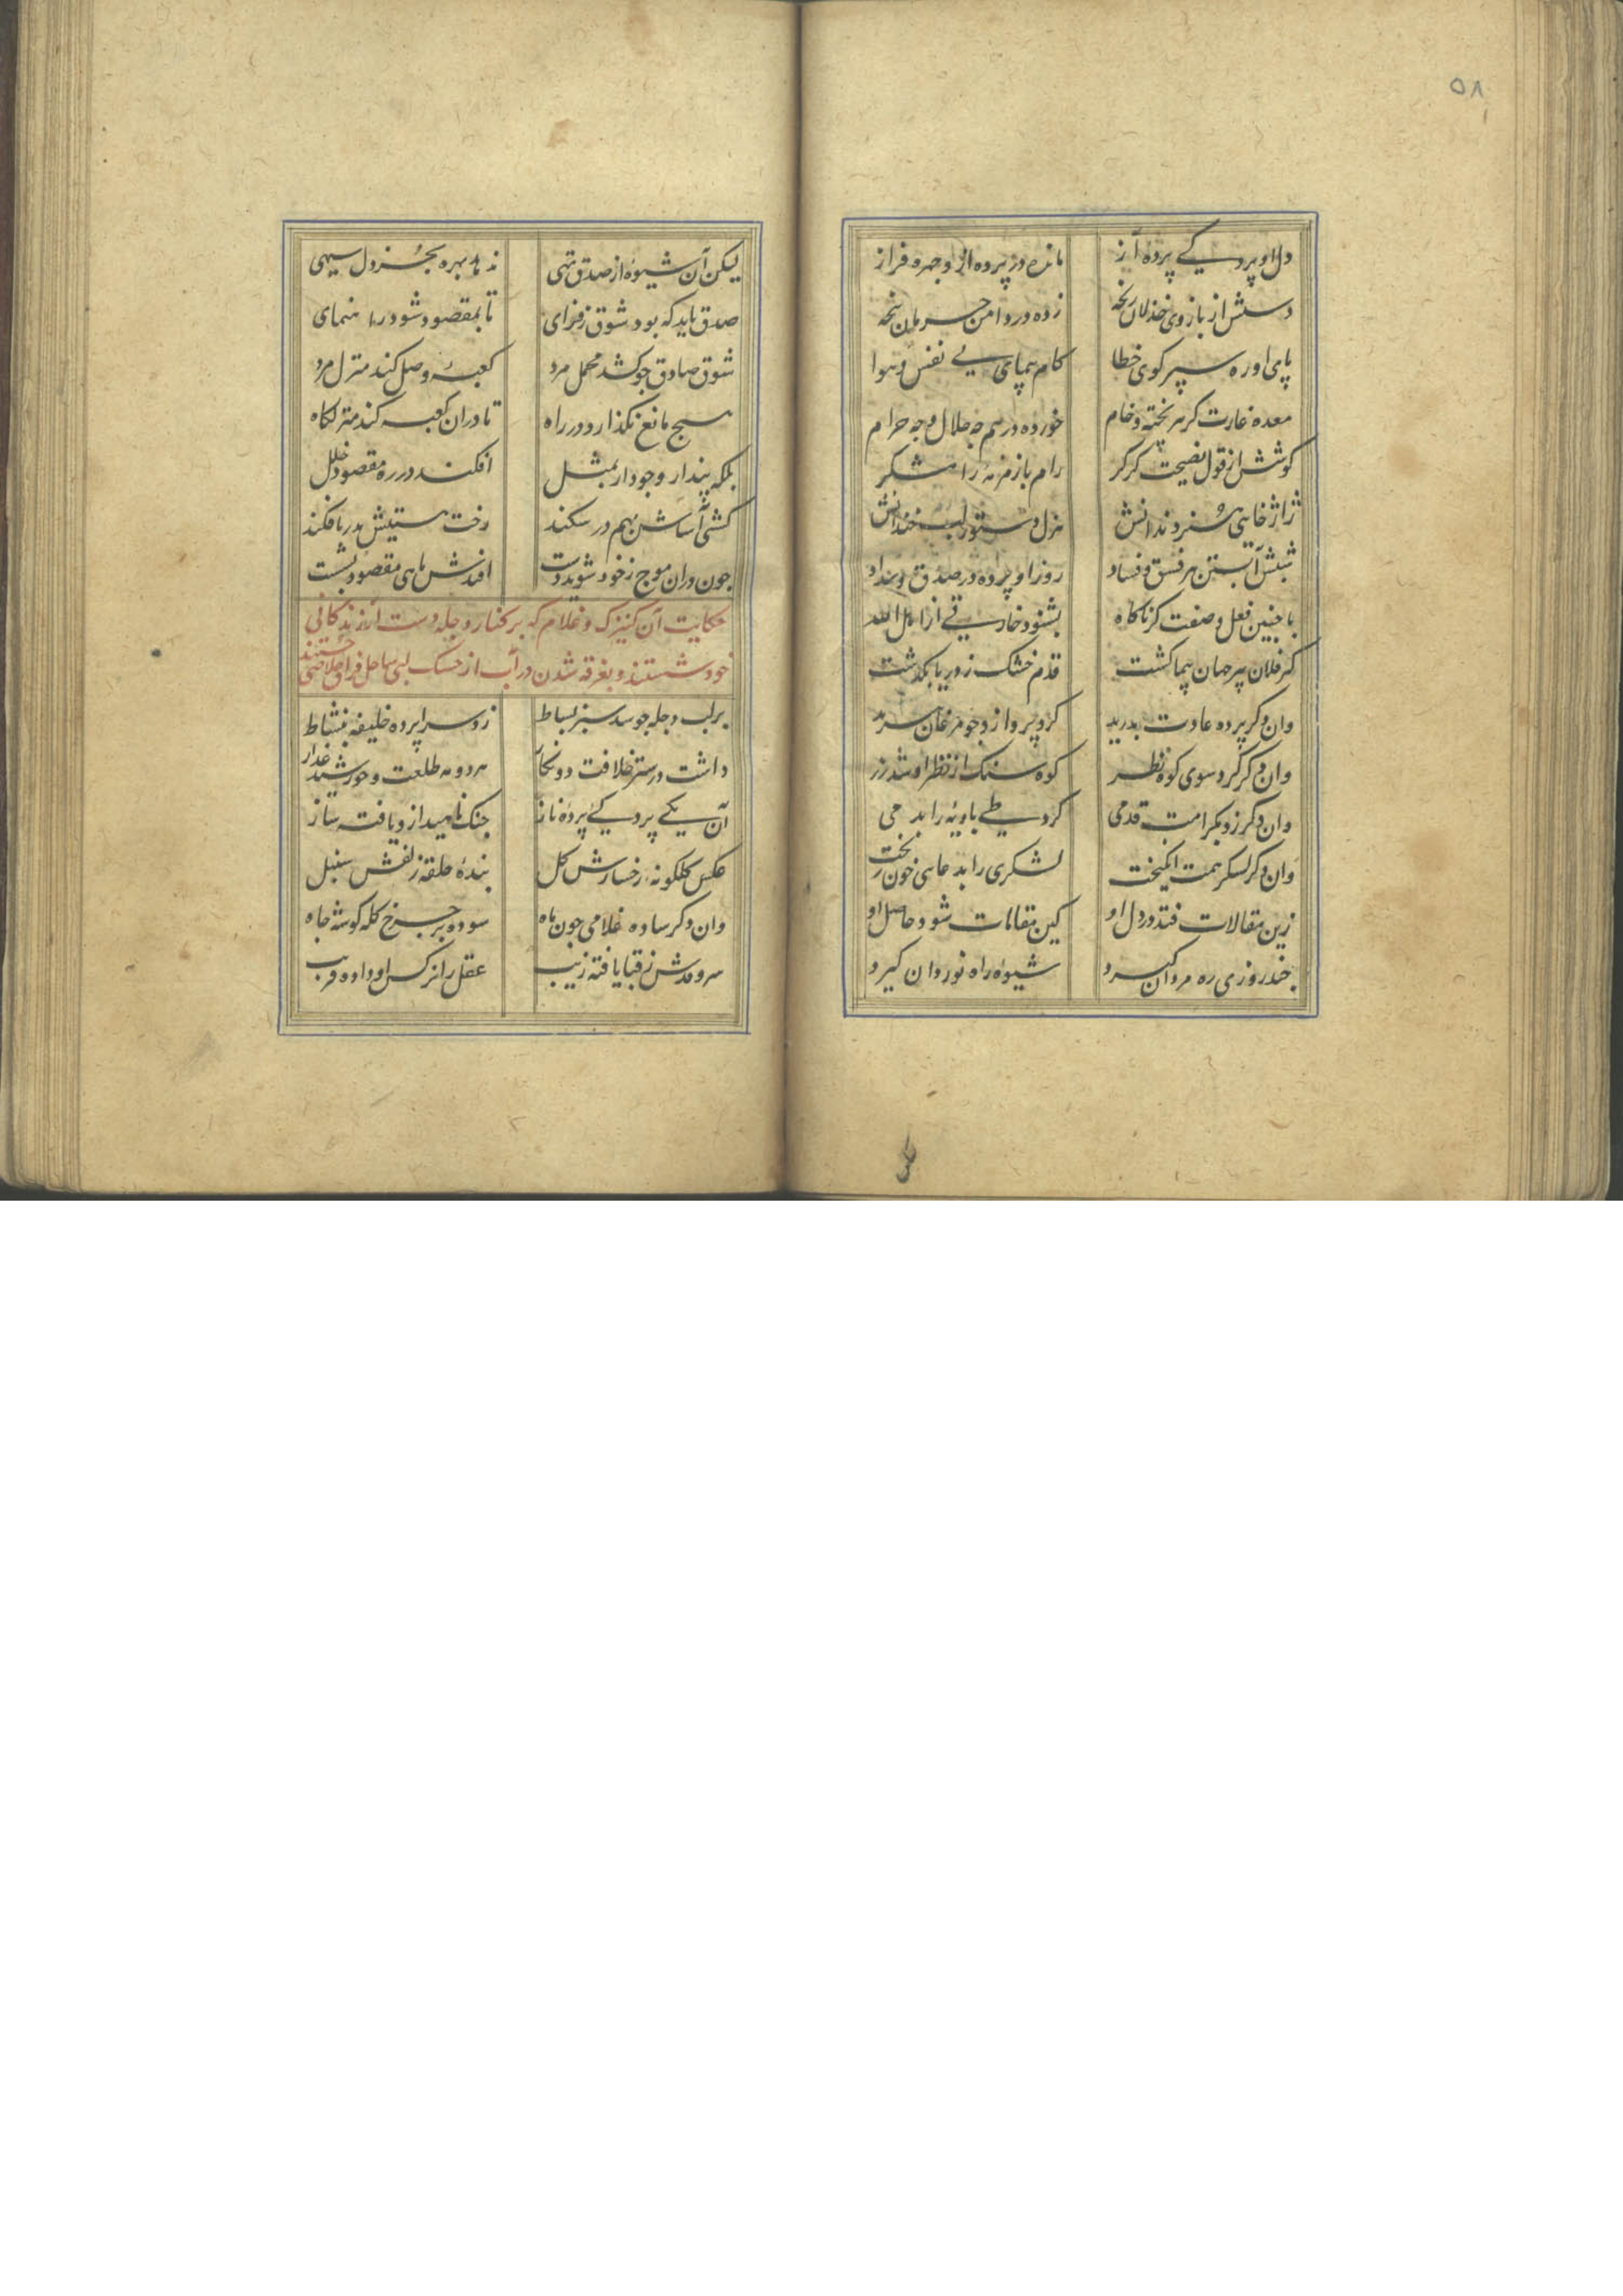 ۵۸
دل او پردگیے پردهٔ آز
مانده در پرده ازو چهره فراز
دستش از بازوی خذلان رنجه
زده در دامن حرمان پنجه
پای او ره سپر کوی خطا
کام پیمای پی نفس و هوا
معده غارت کر هر پخته و خام
خورده در هم چه حلال و چه حرام
کوشش از قول نصیحت کر کر
رام باز مزمه را مشکر
ژاژخایی هنر دندانش
هزل دستور لب خندانش
شبش آبستن هر فسق و فساد
روز او پرده در صدق و سداد
با چنین فعل و صفت کر ناکاه
بشنود خارقے از اهل الله
کز فلان پیر جهان پیما کشت
قدم خشک ز دریا بکذشت
وان دکر پرده عادت بدرید
کرد پرواز و چو مرغان
وان دکر کرد سوی کوه نظر
کوه سنک از نظر او شد زر
وان دکر زد بکرامت قدمی
کرد طے بادیه را بدمی
وان دکر لشکر همت انکیخت
لشکری را بدعایی خون ریخت
زین مقالات فتد در دل او
کین مقامات شود حاصل او
چند روزی ره مردان کیرد
شیوهٔ راه نوردان کیرد
لیکن آن شیوه از صدق تهی
ندهد بهره بجز دل سیهی
صدق باید که بود شوق فزای
تا بمقصود شود راه نمای
شوق صادق چو کشد محمل مرد
کعبهٔ وصل کند منزل مرد
هیچ مانع نکذارد در راه
تا در ان کعبه کند منزلکاه
بلکه پندار وجود ار بمثل
افکند در ره مقصود خلل
کشتی آساش بهم در شکند
رخت هستیش بدریا فکند
چون دران موج ز خود شوید دست
افتدش ماهی مقصود بشست
حکایت آن کنیزک و غلام که بر کنار دجله دست از زندکانی
خود شستند و بغرقه شدن در آب از خشک لبی ساحل فراق خلاصی جستند
بر لب دجله چو شد سبز بساط
زد سراپرده خلیفه بنشاط
داشت در ستر خلافت دو نکار
هر دو مه طلعت و خورشید عذار
آن یکے پردکیے پردهٔ ناز
چنک ناهید ازو یافته ساز
عکس کلکونهٔ رخسارش کل
بندهٔ حلقهٔ زلفش سنبل
وان دکر ساده غلامی چون ماه
سوده بر چرخ کله کوشه جاه
سرو قدش ز قبا یافته زیب
عقل را نرکس او داده فریب